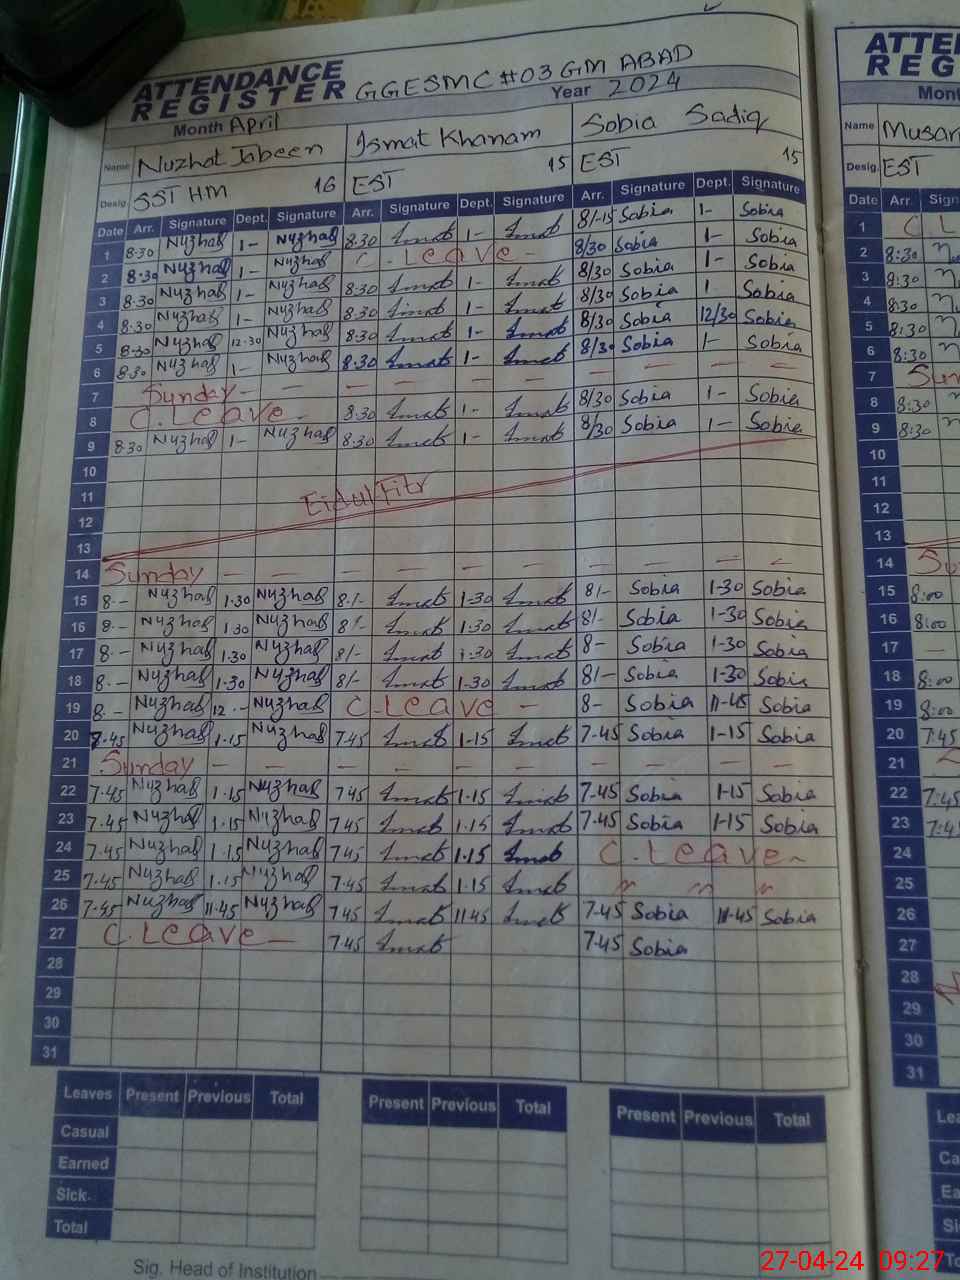 ATTENDANCE REGISTER GGESMC #03 GM ABAD
Month April Year 2024
Name Nuzhat Jabeen Ismat Khanam Sobia Sadiq
Desig. SST HM 16 EST 15 EST 15
Date Arr. Signature Dept. Signature Arr. Signature Dept. Signature Arr. Signature Dept. Signature
1 8.30 Nuzhat 1- Nuzhat 8.30 Ismat 1- Ismat 8/-15 Sobia 1- Sobia
2 8.30 Nuzhat 1- Nuzhat C. Leave - 8/30 Sobia 1- Sobia
3 8.30 Nuzhat 1- Nuzhat 8.30 Ismat 1- Ismat 8/30 Sobia 1- Sobia
4 8.30 Nuzhat 1- Nuzhat 8.30 Ismat 1- Ismat 8/30 Sobia 1 Sobia
5 8.30 Nuzhat 12.30 Nuzhat 8.30 Ismat 1- Ismat 8/30 Sobia 12/30 Sobia
6 8.30 Nuzhat 1- Nuzhat 8.30 Ismat 1- Ismat 8/30 Sobia 1- Sobia
7 Sunday - - - - - - - - - -
8 C. Leave - 8.30 Ismat 1- Ismat 8/30 Sobia 1- Sobia
9 8.30 Nuzhat 1- Nuzhat 8.30 Ismat 1- Ismat 8/30 Sobia 1- Sobia
10
11 Eidul Fitr
12
13
14 Sunday - - - - - - - - - -
15 8.- Nuzhat 1.30 Nuzhat 8./- Ismat 1.30 Ismat 8/- Sobia 1-30 Sobia
16 8.- Nuzhat 1.30 Nuzhat 8/- Ismat 1.30 Ismat 8/- Sobia 1-30 Sobia
17 8.- Nuzhat 1.30 Nuzhat 8/- Ismat 1.30 Ismat 8- Sobia 1-30 Sobia
18 8.- Nuzhat 1.30 Nuzhat 8/- Ismat 1.30 Ismat 8/- Sobia 1-30 Sobia
19 8.- Nuzhat 12.- Nuzhat C. Leave - 8- Sobia 11-45 Sobia
20 7.45 Nuzhat 1.15 Nuzhat 7.45 Ismat 1-15 Ismat 7-45 Sobia 1-15 Sobia
21 Sunday - - - - - - - - - -
22 7.45 Nuzhat 1.15 Nuzhat 7.45 Ismat 1.15 Ismat 7-45 Sobia 1-15 Sobia
23 7.45 Nuzhat 1.15 Nuzhat 7.45 Ismat 1.15 Ismat 7-45 Sobia 1-15 Sobia
24 7.45 Nuzhat 1.15 Nuzhat 7.45 Ismat 1.15 Ismat C. Leave -
25 7.45 Nuzhat 1.15 Nuzhat 7.45 Ismat 1.15 Ismat " " "
26 7.45 Nuzhat 11.45 Nuzhat 7.45 Ismat 11.45 Ismat 7-45 Sobia 11-45 Sobia
27 C. Leave - 7.45 Ismat 7-45 Sobia
28
29
30
31
Leaves Present Previous Total Present Previous Total Present Previous Total
Casual
Earned
Sick.
Total
Sig. Head of Institution
Name
Desig. EST
Date Arr.
1 C L
2 8:30
3 8:30
4 8:30
5 8:30
6 8:30
7
8 8:30
9 8:30
10
11
12
13
14
15 8:00
16 8:00
17 -
18 8:00
19 8:00
20 7:45
21
22 7:45
23 7:45
24
25
26
27
28
29
30
31
27-04-24 09:27